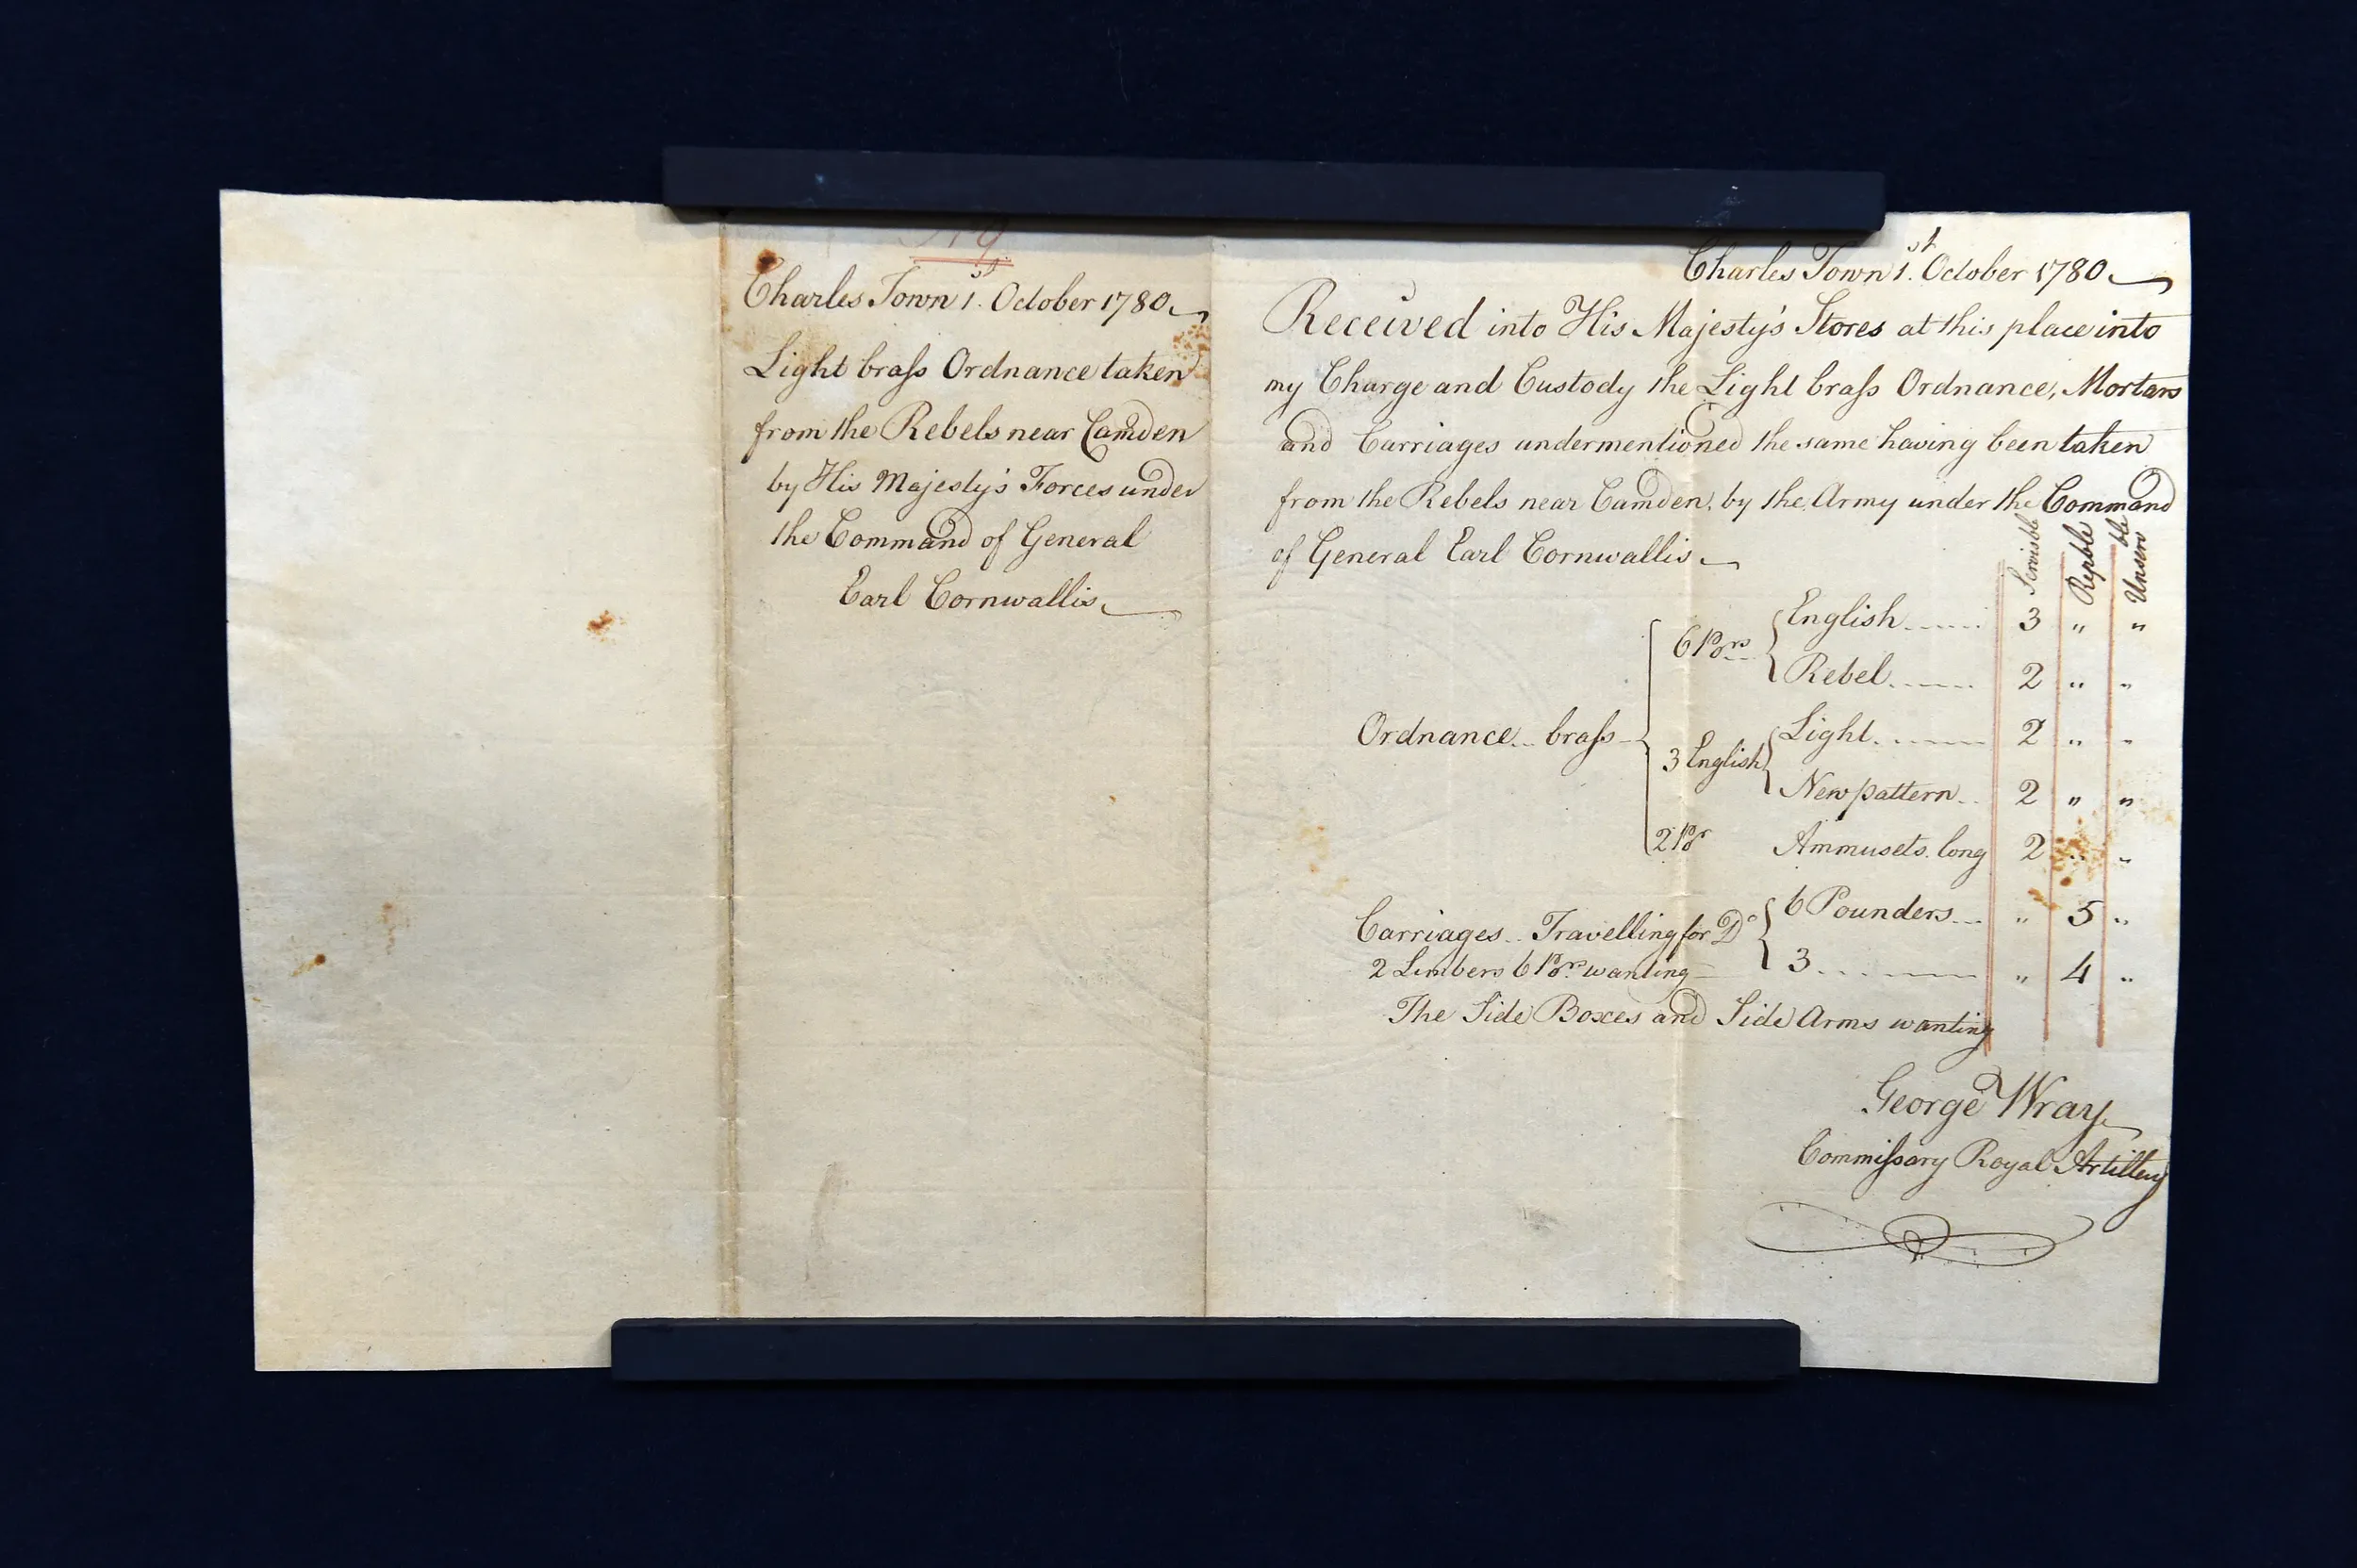 Charles Town 1.st October 1780
Light braſs Ordnance taken
from the Rebels near Camden
by His Majesty's Forces under
the Command of General
Earl Cornwallis
Charles Town 1.st October 1780
Received into His Majesty's Stores at this place into
my Charge and Custody the Light braſs Ordnance, Mortars
and Carriages undermentioned the same having been taken
from the Rebels near Camden, by the Army under the Command
of General Earl Cornwallis
Servisble Repble Unservble
Ordnance braſs
6 Prs English 3 " "
Rebel 2 " "
3 English Light 2 " "
New pattern 2 " "
2 Pr Ammusets long 2 " "
Carriages Travelling for Do 6 Pounders " 5 "
2 Limbers 6 Prs wanting 3 " 4 "
The Side Boxes and Side Arms wanting
George Wray
Commiſsary Royal Artillery